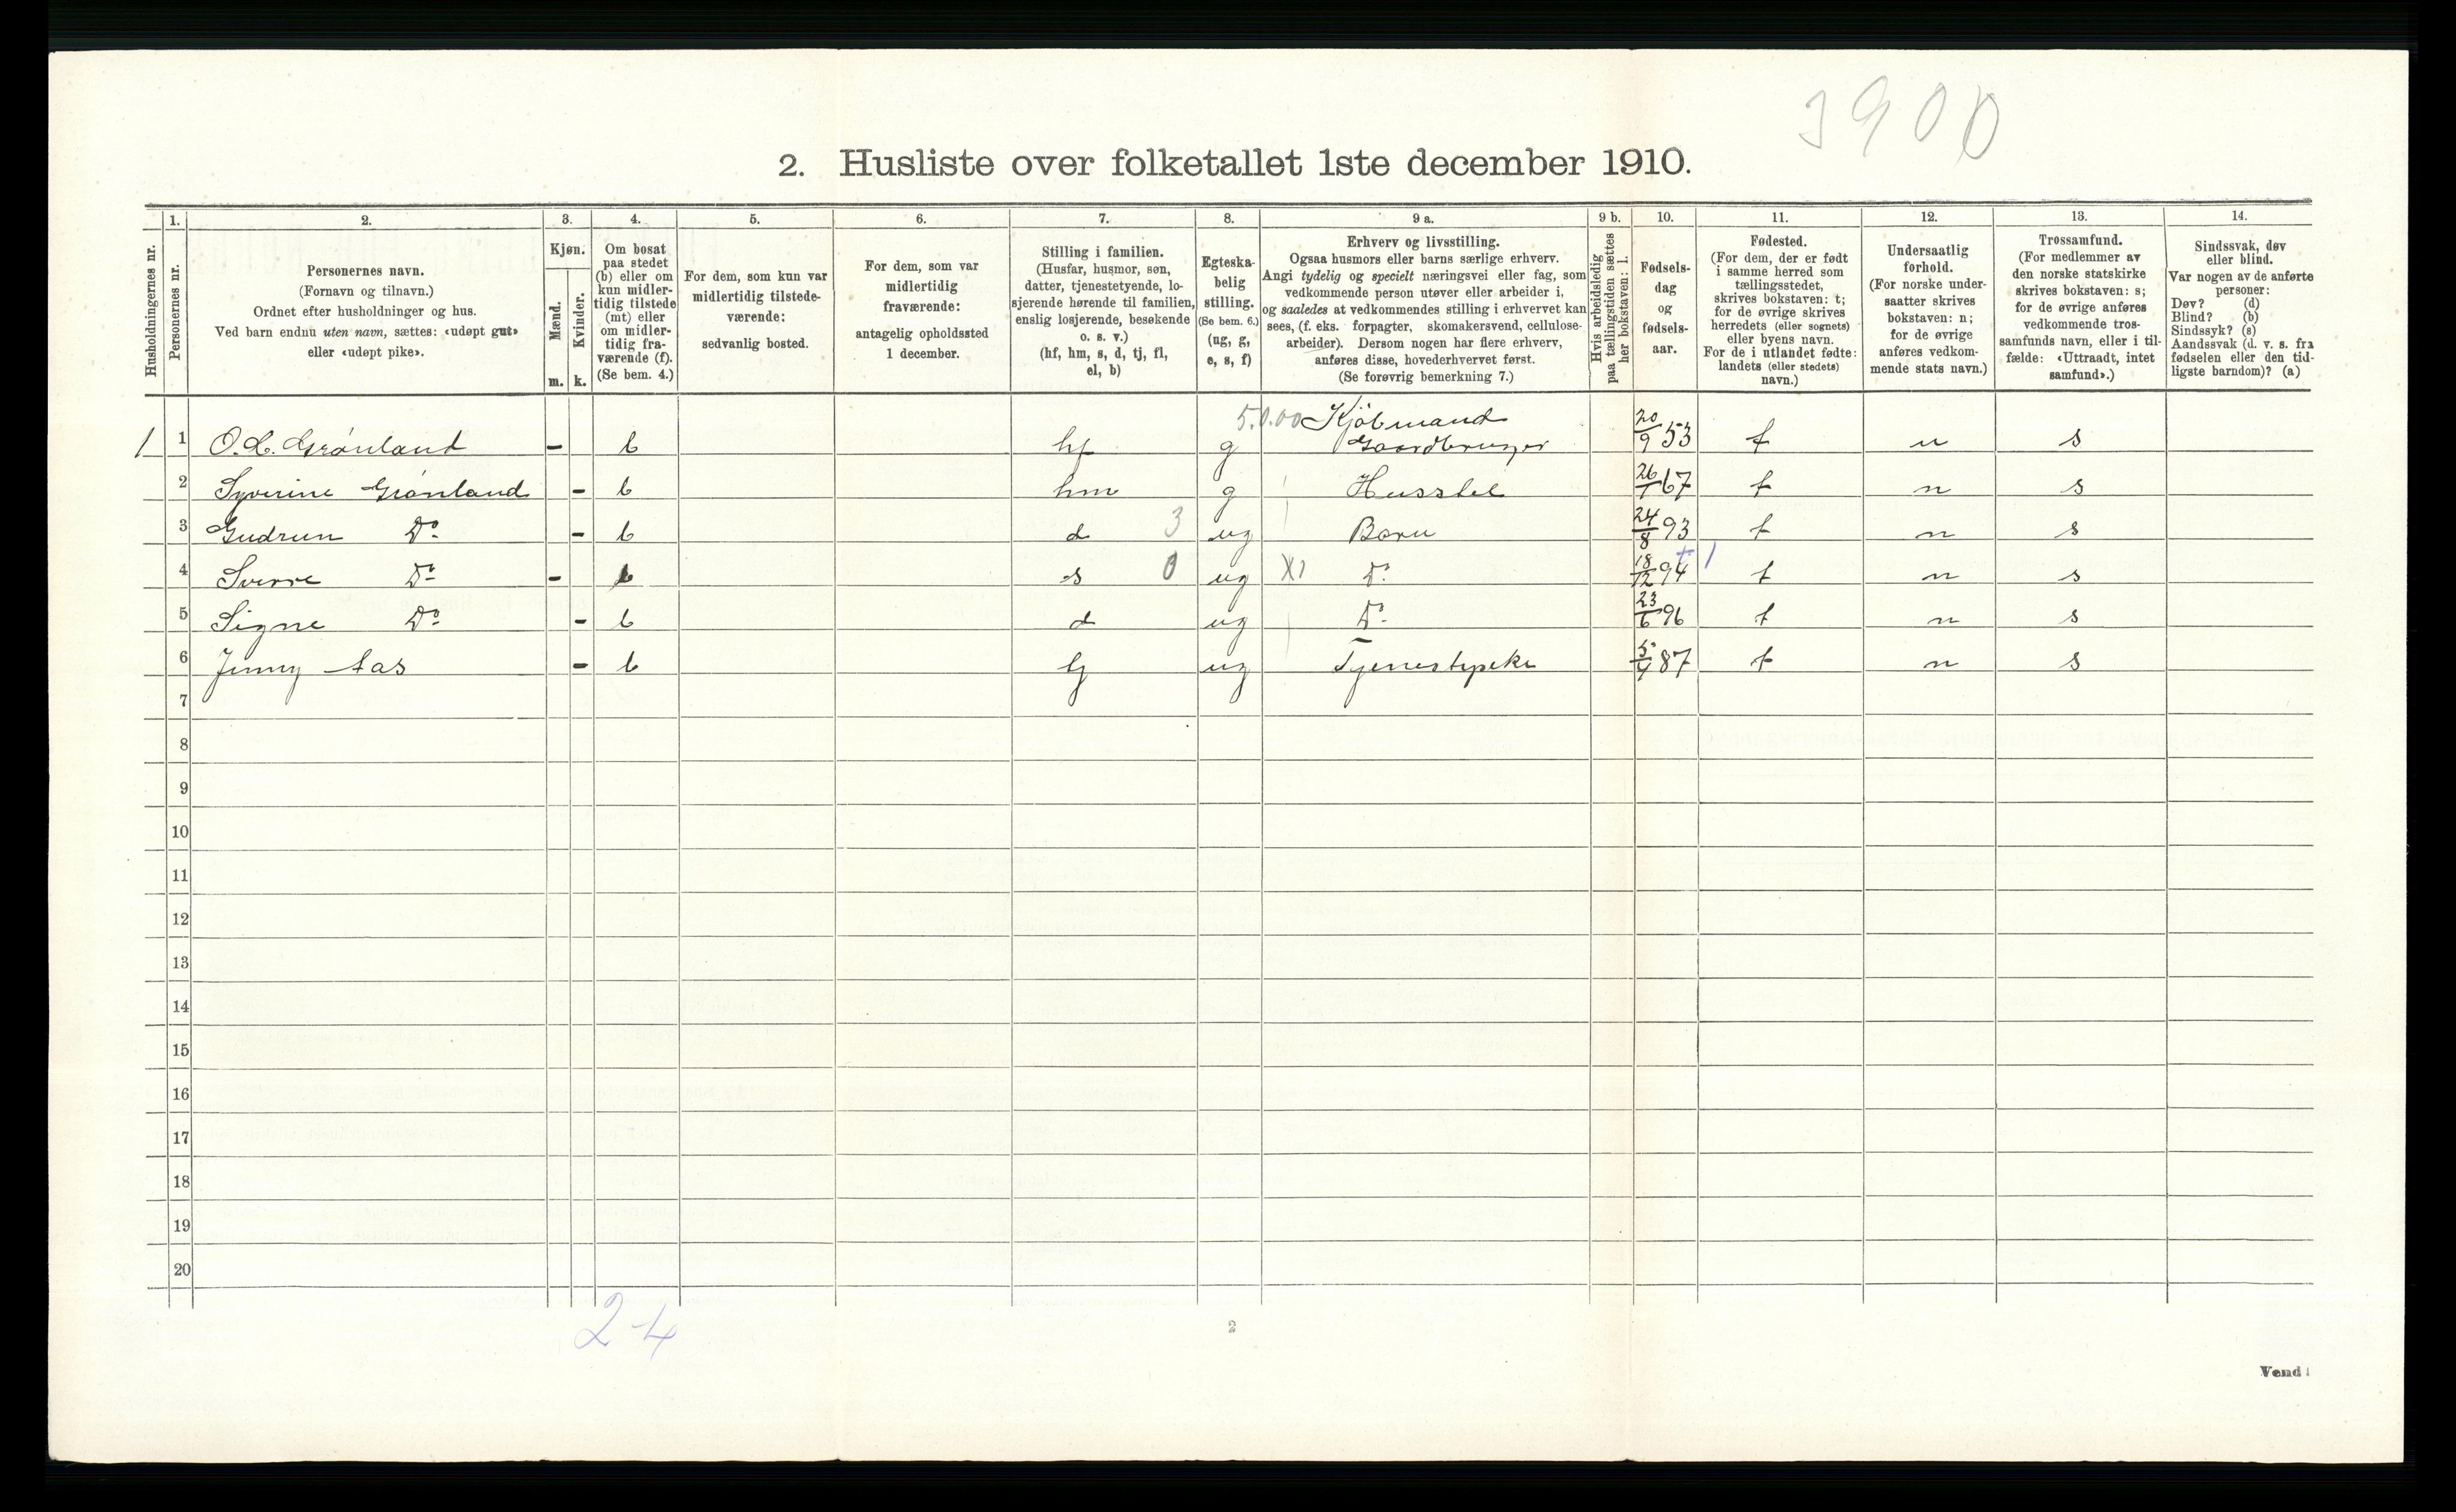 3900
2. Husliste over folketallet 1ste december 1910.
Husholdningernes nr.
1.
Personernes nr.
2.
Personernes navn.
(Fornavn og tilnavn.)
Ordnet efter husholdninger og hus.
Ved barn endnu uten navn, sættes: «udøpt gut»
eller «udøpt pike».
3.
Kjøn.
Mænd.
m.
Kvinder.
k.
4.
Om bosat
paa stedet
(b) eller om
kun midler-
tidig tilstede
(mt) eller
om midler-
tidig fra-
værende (f).
(Se bem. 4.)
5.
For dem, som kun var
midlertidig tilstede-
værende:
sedvanlig bosted.
6.
For dem, som var
midlertidig
fraværende:
antagelig opholdssted
1 december.
7.
Stilling i familien.
(Husfar, husmor, søn,
datter, tjenestetyende, lo-
sjerende hørende til familien,
enslig losjerende, besøkende
o. s. v.)
(hf, hm, s, d, tj, fl,
el, b)
8.
Egteska-
belig
stilling.
(Se bem. 6.)
(ug, g,
e, s, f)
9 a.
Erhverv og livsstilling.
Ogsaa husmors eller barns særlige erhverv.
Angi tydelig og specielt næringsvei eller fag, som
vedkommende person utøver eller arbeider i,
og saaledes at vedkommendes stilling i erhvervet kan
sees, (f. eks. forpagter, skomakersvend, cellulose-
arbeider). Dersom nogen har flere erhverv,
anføres disse, hovederhvervet først.
(Se forøvrig bemerkning 7.)
9 b.
Hvis arbeidsledig
paa tællingstiden sættes
her bokstaven: l.
10.
Fødsels-
dag
og
fødsels-
aar.
11.
Fødested.
(For dem, der er født
i samme herred som
tællingsstedet,
skrives bokstaven: t;
for de øvrige skrives
herredets (eller sognets)
eller byens navn.
For de i utlandet fødte:
landets (eller stedets)
navn.)
12.
Undersaatlig
forhold.
(For norske under-
saatter skrives
bokstaven: n;
for de øvrige
anføres vedkom-
mende stats navn.)
13.
Trossamfund.
(For medlemmer av
den norske statskirke
skrives bokstaven: s;
for de øvrige anføres
vedkommende tros-
samfunds navn, eller i til-
fælde: «Uttraadt, intet
samfund».)
14.
Sindssvak, døv
eller blind.
Var nogen av de anførte
personer:
Døv? (d)
Blind? (b)
Sindssyk? (s)
Aandssvak (d. v. s. fra
fødselen eller den tid-
ligste barndom)? (a)
5.0.00 Kjöbmand
1 1 O. L. Grönland - b hf g Gaardbruger 20/9 53 t n s
2 Syverine Grönland - b hm g Husstel 26/1 67 t n s
3 Gudrun Do - b d 3 ug Barn 24/8 93 t n s
4 Sverre Do - b s 0 ug X1 Do 18/12 94 t 1 t n s
5 Signe Do - b d ug Do 23/6 96 t n s
6 Jenny Aas - b tj ug Tjenestepike 5/4 87 t n s
7
8
9
10
11
12
13
14
15
16
17
18
19
20
2-4
2
Vend!